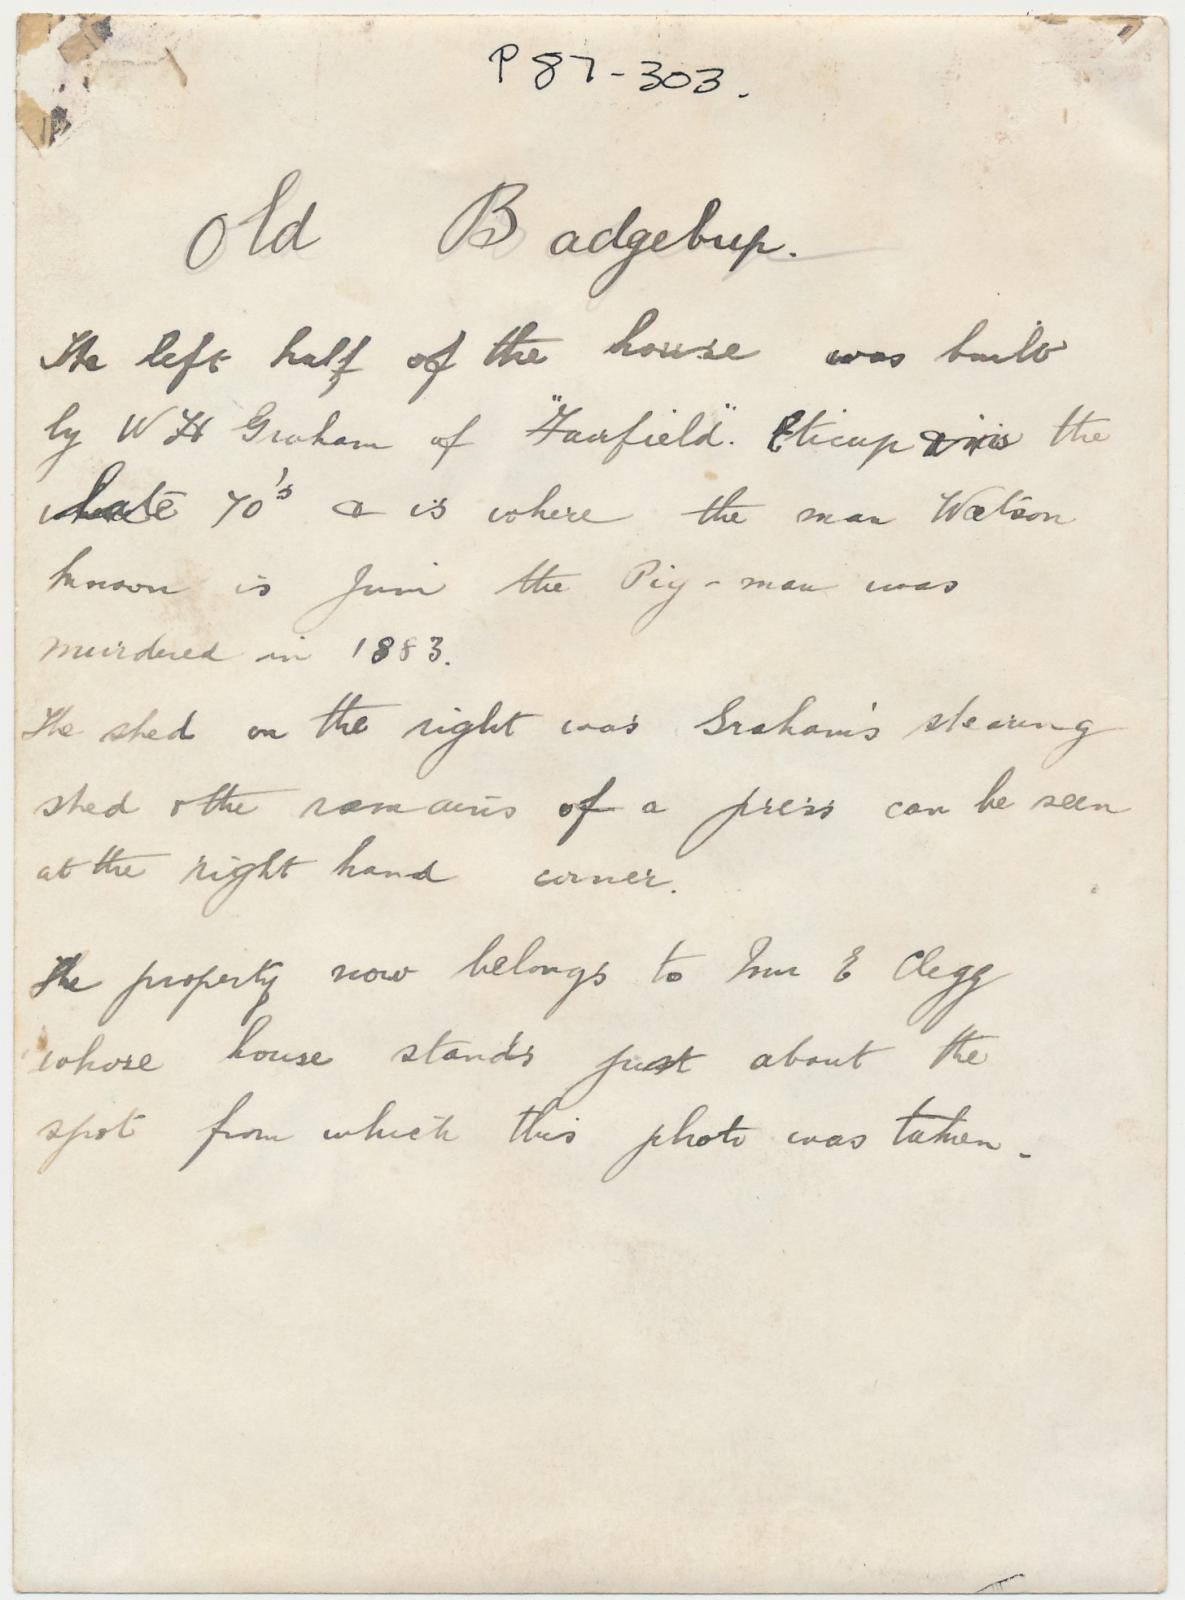 P 87-303.
Old Badgebup.
The left half of the house was built
by W H Graham of "Fairfield". Eticup in the
late 70's & is where the man Watson
known is Jim the Pig-man was
murdered in 1883.
The shed on the right was Graham's shearing
shed & the remains of a press can be seen
at the right hand corner.
The property now belongs to Mr E Clegg
whose house stands just about the
spot from which this photo was taken.